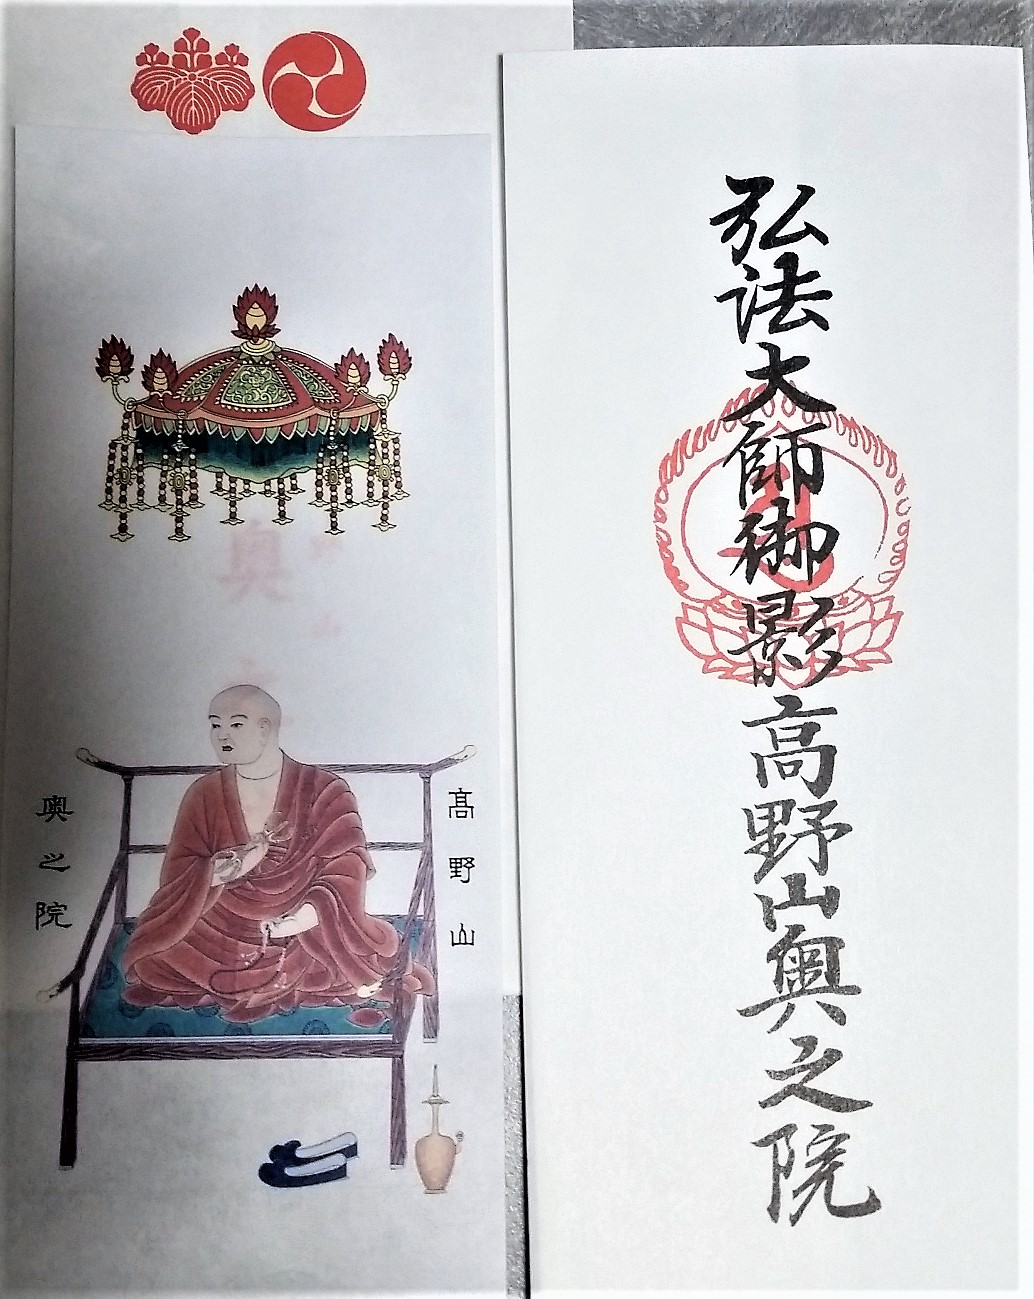 弘法大師御影高野山奥之院
高野山
奥之院
奥